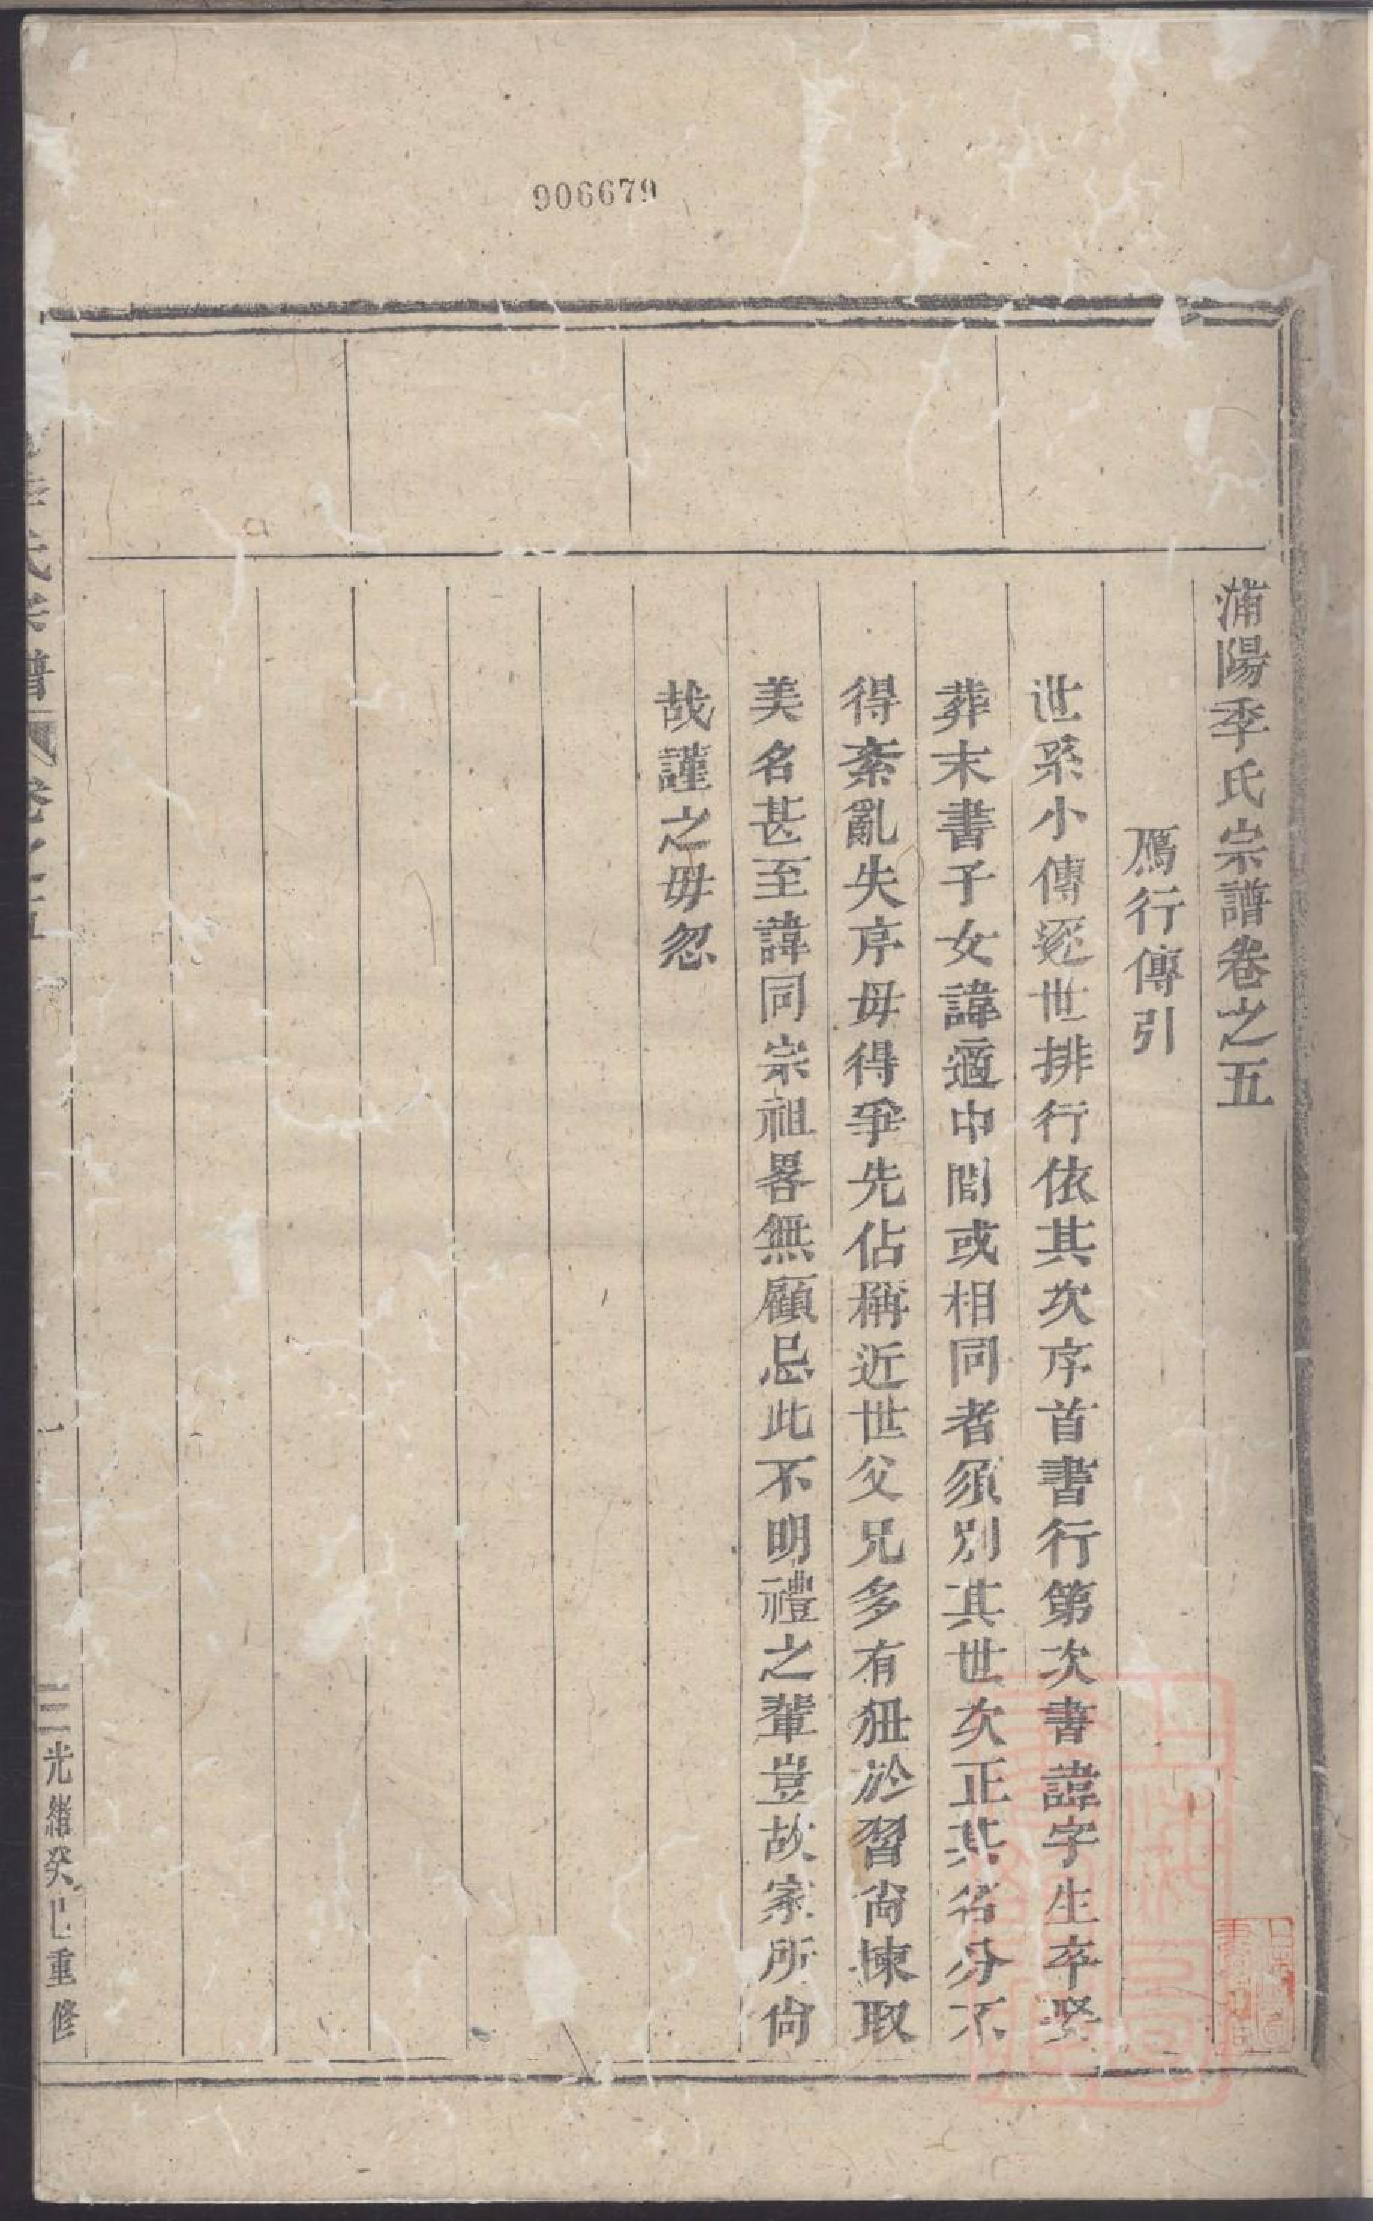 906679
浦陽季氏宗譜卷之五
鴈行傳引
世系小傳逐世排行依其次序首書行第次書諱字生卒娶
葬末書子女諱適中間或相同者須別其世次正其名分不
得紊亂失序毋得爭先佔稱近世父兄多有狃於習尙揀取
美名甚至諱同宗祖畧無顧忌此不明禮之輩豈故家所尙
哉謹之毋忽
季氏宗譜 卷之五 一 光緒癸巳重修
上海圖書館藏